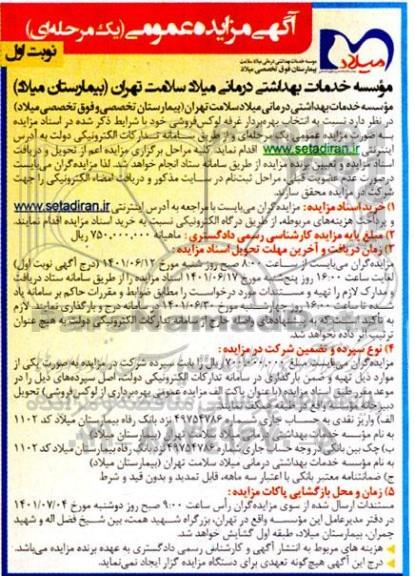 آگهی مزایده عمومی (یک مرحله‌ای)
نوبت اول
میلاد
موسسه خدمات بهداشتی درمانی میلاد سلامت
بیمارستان فوق تخصصی میلاد
مؤسسه خدمات بهداشتی درمانی میلاد سلامت تهران (بیمارستان میلاد)
مؤسسه خدمات بهداشتی درمانی میلاد سلامت تهران (بیمارستان تخصصی و فوق تخصصی میلاد)
در نظر دارد نسبت به انتخاب بهره‌بردار غرفه لوکس فروشی خود با شرایط ذکر شده در اسناد مزایده
به صورت مزایده عمومی یک مرحله‌ای و از طریق سامانه تدارکات الکترونیکی دولت به آدرس
اینترنتی www.setadiran.ir اقدام نماید. کلیه مراحل برگزاری مزایده اعم از تحویل و دریافت
اسناد مزایده و تعیین برنده مزایده از طریق سامانه ستاد انجام خواهد شد. لذا مزایده‌گران می‌بایست
در صورت عدم عضویت قبلی، مراحل ثبت‌نام در سایت مذکور و دریافت امضاء الکترونیکی را جهت
شرکت در مزایده محقق سازند.
۱) خرید اسناد مزایده: مزایده‌گران می‌بایست با مراجعه به آدرس اینترنتی www.setadiran.ir
و پرداخت هزینه‌های مربوطه، از طریق درگاه الکترونیکی نسبت به خرید اسناد مزایده اقدام نمایند.
۲) مبلغ پایه مزایده کارشناسی رسمی دادگستری: ماهیانه ۷۵۰,۰۰۰,۰۰۰ ریال
۳) زمان دریافت و آخرین مهلت تحویل اسناد مزایده:
مزایده‌گران می‌بایست از ساعت ۸:۰۰ صبح روز شنبه مورخ ۱۴۰۱/۰۶/۱۲ (درج آگهی نوبت اول)
لغایت ساعت ۱۶:۰۰ روز پنج‌شنبه مورخ ۱۴۰۱/۰۶/۱۷ اسناد مزایده را از طریق سامانه ستاد دریافت
مدارک لازم را تهیه و مستندات مورد درخواست را مطابق شرایط و مقررات حاکم بر سامانه یاد
شده تا ساعت ۱۶:۰۰ روز چهارشنبه مورخ ۱۴۰۱/۰۶/۳۰ در سامانه درج و بارگذاری نمایند. لازم
به تأکید است که به پیشنهادهای واصله خارج از سامانه تدارکات الکترونیکی دولت به هیچ عنوان
ترتیب اثر داده نخواهد شد.
۴) نوع سپرده و تضمین شرکت در مزایده:
مزایده‌گران می‌بایست مبلغ ریال را بابت سپرده شرکت در مزایده به صورت یکی از
موارد ذیل تهیه و ضمن بارگذاری در سامانه تدارکات الکترونیکی دولت، اصل سپرده‌های ذیل را در
موعد مقرر طبق اسناد مزایده (با عنوان پاکت الف مزایده عمومی بهره‌برداری از لوکس فروشی) تحویل
دبیرخانه مؤسسه واقع در طبقه نمایند.
الف) واریز نقدی به حساب جاری شماره ۴۹۷۵۴۷۸۶ نزد بانک رفاه بیمارستان میلاد کد ۱۱۰۲
به نام مؤسسه خدمات بهداشتی درمانی میلاد سلامت تهران (بیمارستان میلاد)
ب) چک بین بانکی در وجه حساب جاری شماره ۴۹۷۵۴۷۸۶ نزد بانک رفاه بیمارستان میلاد کد ۱۱۰۲
به نام مؤسسه خدمات بهداشتی درمانی میلاد سلامت تهران (بیمارستان میلاد)
ج) ضمانتنامه معتبر بانکی با اعتبار سه ماهه، قابل تمدید و بدون قید و شرط
۵) زمان و محل بازگشایی پاکات مزایده:
مستندات ارسال شده از سوی مزایده‌گران رأس ساعت ۹:۰۰ صبح روز دوشنبه مورخ ۱۴۰۱/۰۷/۰۴
در دفتر مدیرعامل این مؤسسه واقع در تهران، بزرگراه شهید همت، بین شیخ فضل اله و شهید
چمران، بیمارستان میلاد، طبقه اول گشایش خواهد شد.
هزینه های مربوط به انتشار آگهی و کارشناس رسمی دادگستری به عهده برنده مزایده می‌باشد.
درج این آگهی هیچ‌گونه تعهدی برای دستگاه مزایده گزار ایجاد نمی‌نماید.